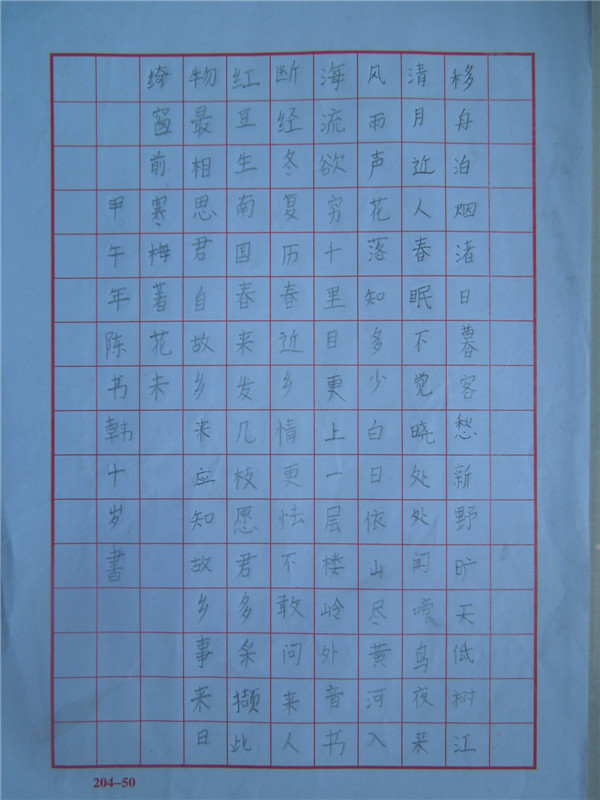 移舟泊烟渚日暮客愁新野旷天低树江
清月近人春眠不觉晓处处闻啼鸟夜来
风雨声花落知多少白日依山尽黄河入
海流欲穷十里目更上一层楼岭外音书
断经冬复历春近乡情更怯不敢问来人
红豆生南国春来发几枝愿君多采撷此
物最相思君自故乡来应知故乡事来日
绮窗前寒梅著花未
甲午年陈书韩十岁書
204-50